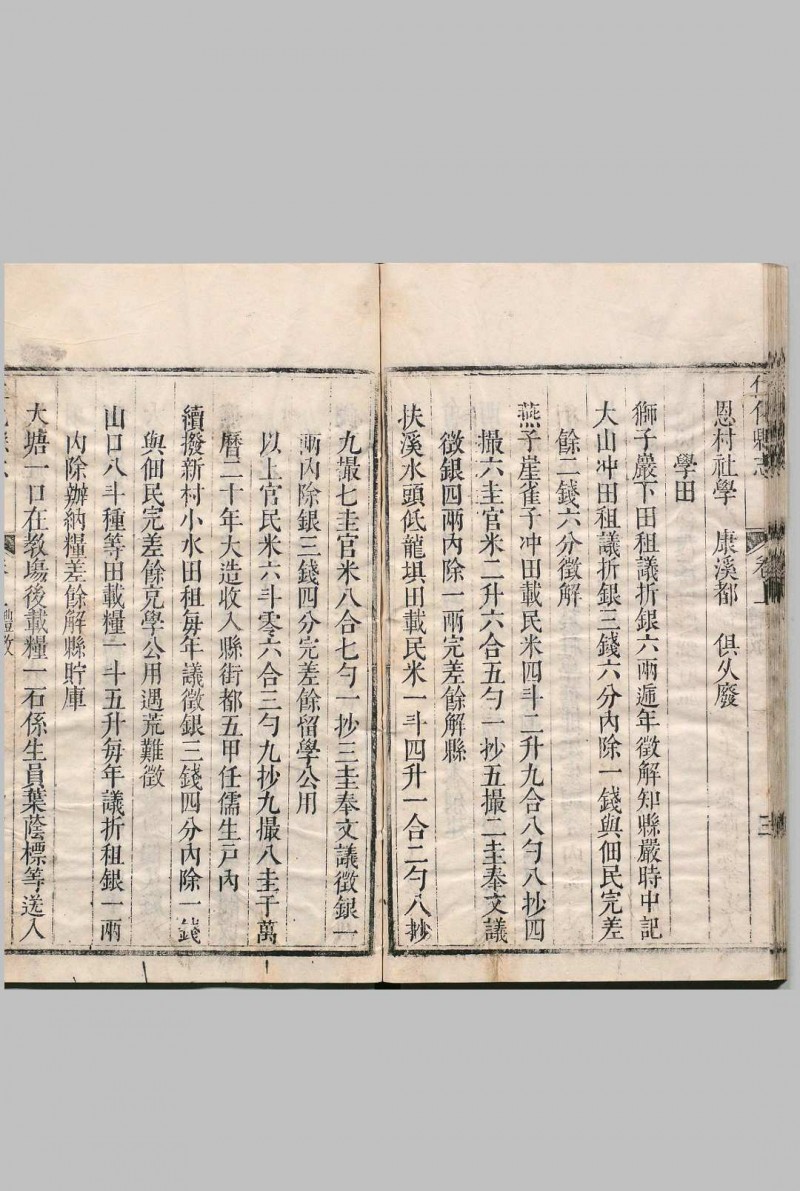 仁化縣志 卷上 三
恩村社學 康溪都 俱久廢
學田
獅子巖下田租議折銀六兩遞年徵解知縣嚴時中記
大山冲田租議折銀三錢六分內除一錢與佃民完差
餘二錢六分徵解
燕子崖雀子冲田載民米四斗二升九合八勺八抄四
撮六圭官米二升六合五勺一抄五撮二圭奉文議
徵銀四兩內除一兩完差餘解縣
扶溪水頭低龍埧田載民米一斗四升一合二勺八抄
九撮七圭官米八合七勺一抄三圭奉文議徵銀一
兩內除銀三錢四分完差餘留學公用
以上官民米六斗零六合三勺九抄九撮八圭于萬
曆二十年大造收入縣街都五甲任儒生戸內
續撥新村小水田租每年議徵銀三錢四分內除一錢
與佃民完差餘充學公用遇荒難徵
山口八斗種等田載糧一斗五升每年議折租銀一兩
內除辦納糧差餘解縣貯庫
大塘一口在教塲後載糧一石係生員葉蔭標等送入